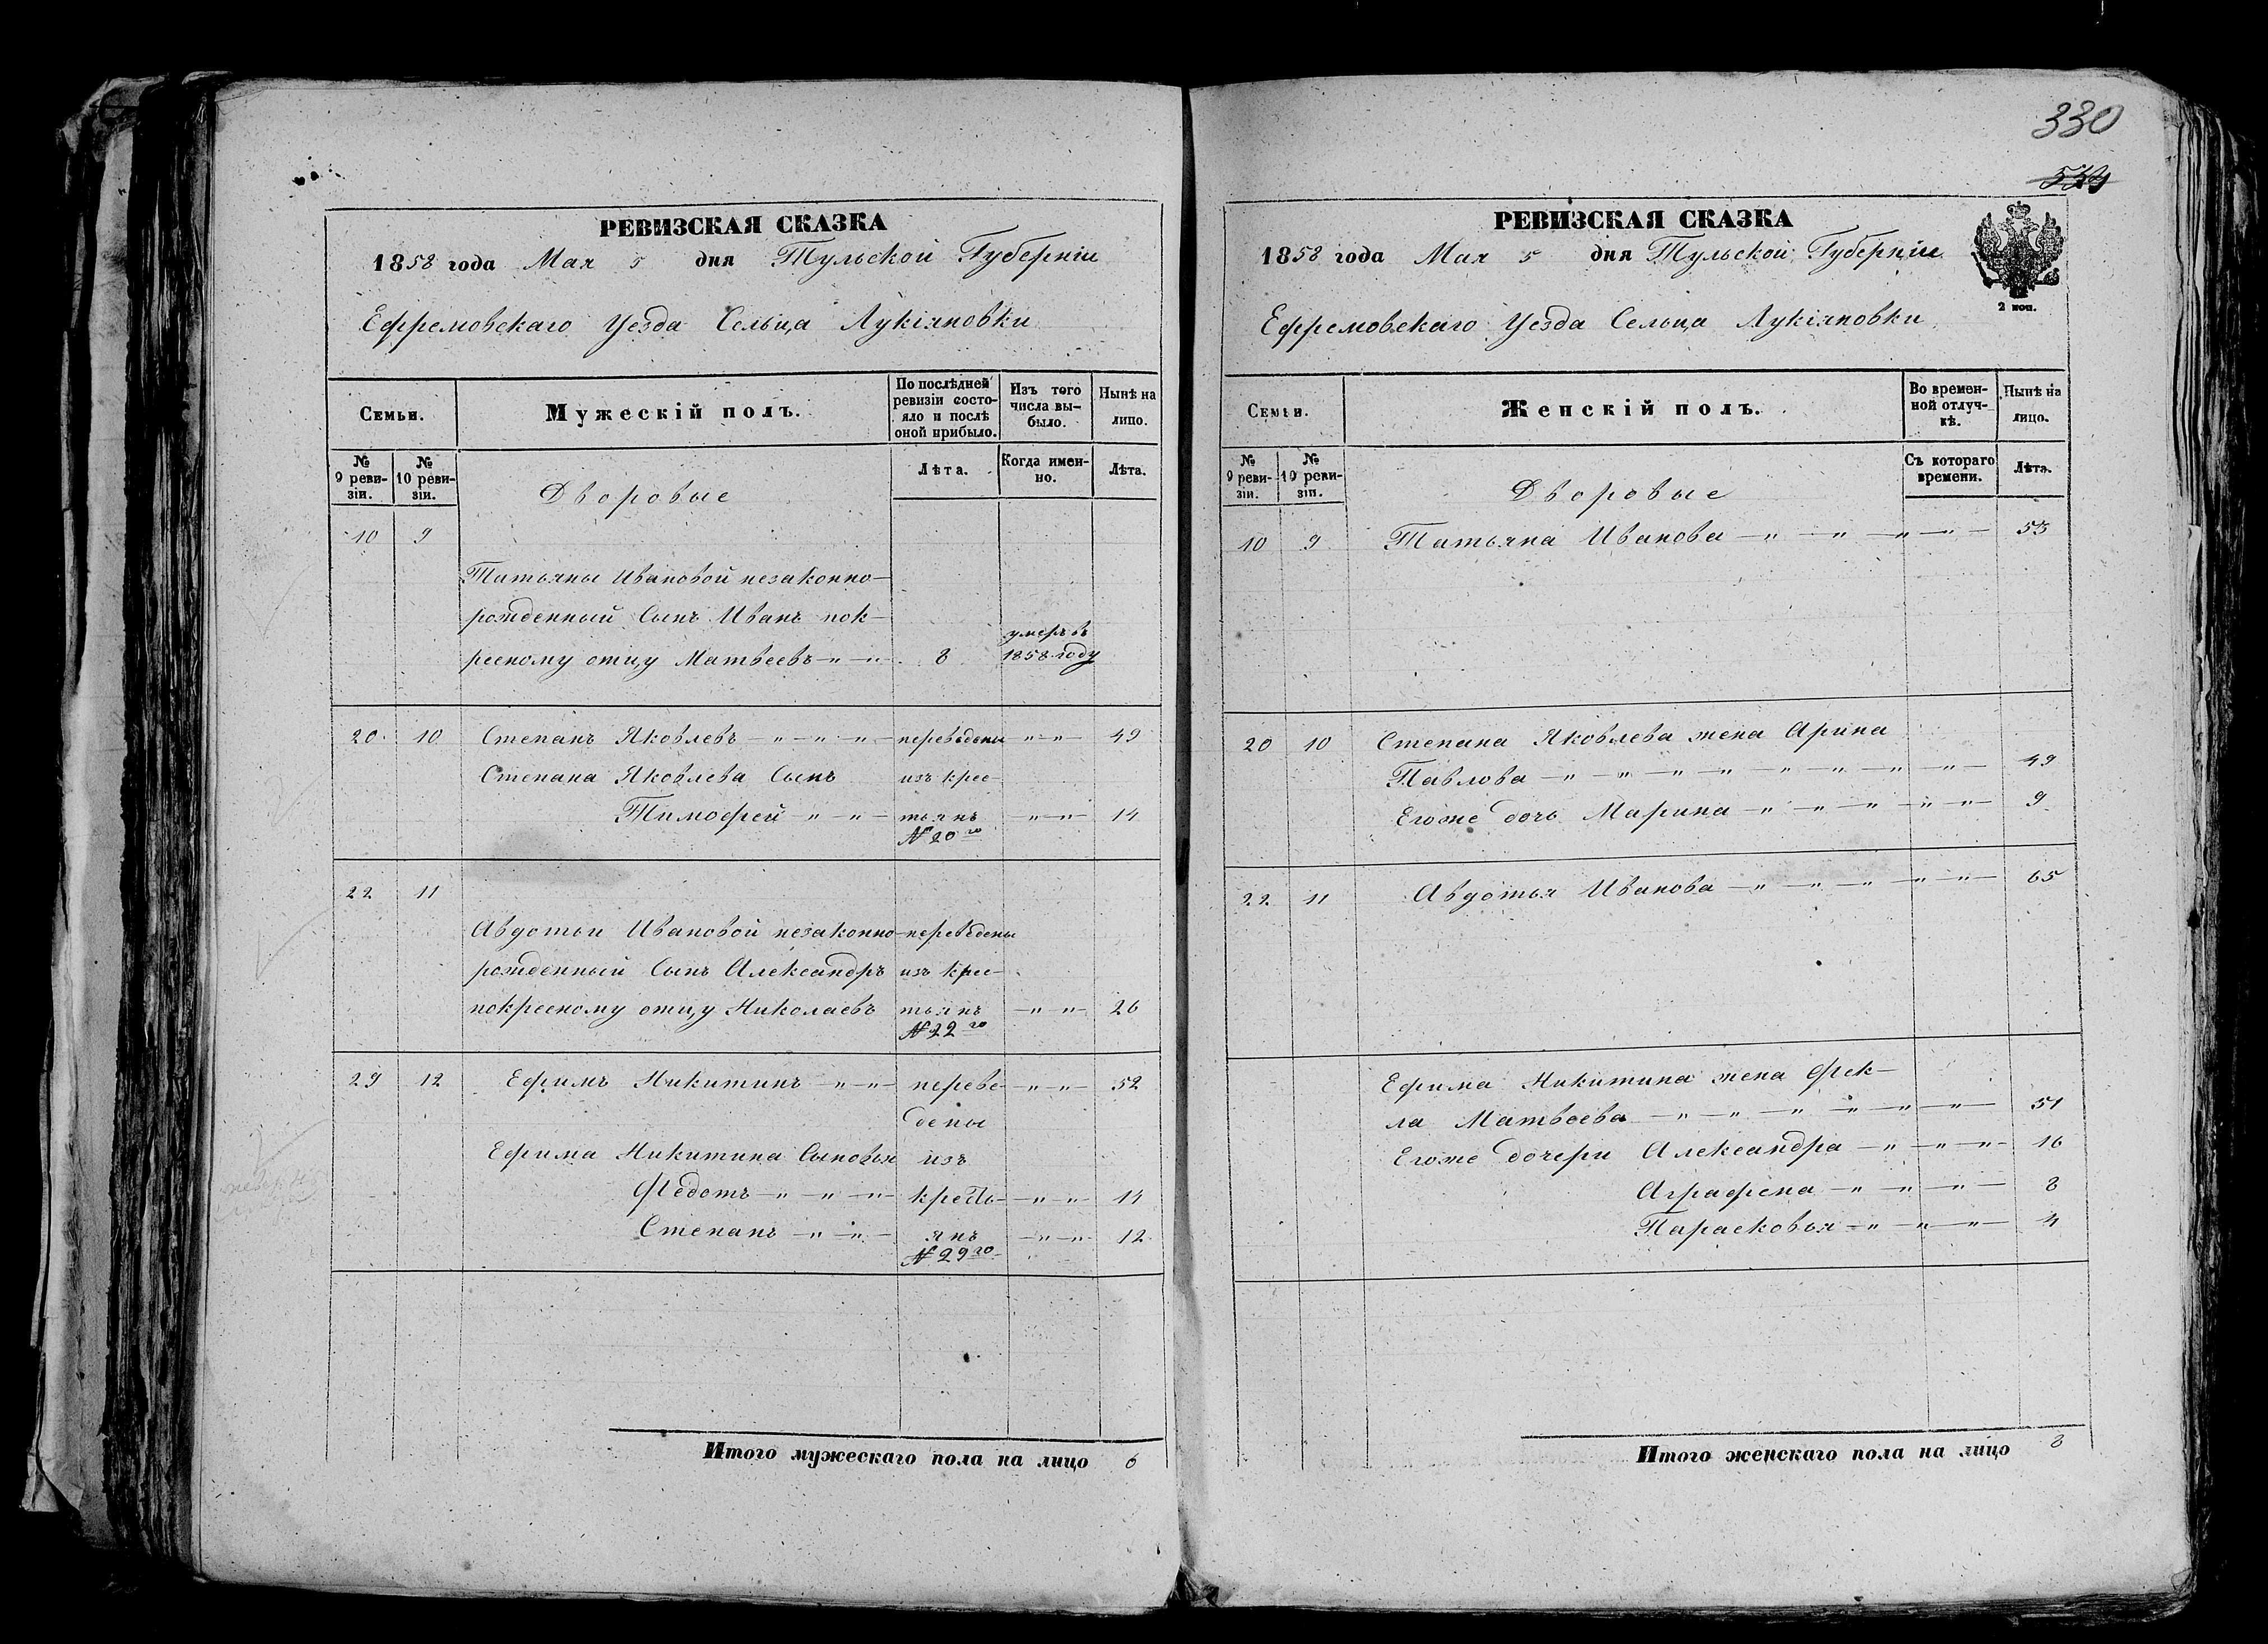 330
РЕВИЗСКАЯ СКАЗКА
1858 года Мая 5 дня Тульской Губерніи
Ефремовскаго Уезда Сельца Лукіяновки
Семьи.
Мужескій полъ.
По послѣдней ревизіи состояло и послѣ оной прибыло.
Изъ того числа выбыло.
Нынѣ на лицо.
№ 9 ревизіи.
№ 10 ревизіи.
Дворовые
Лѣта.
Когда именно.
Лѣта.
10 9
Татьяны Ивановой незаконно-
рожденный Сынъ Иванъ пок-
ресному отцу Матвеевъ -"- -"- 8 умеръ въ 1858 году
20 10 Степанъ Яковлевъ -"- -"- -"- переведены -"- 49
Степана Яковлева Сынъ изъ крес-
Тимофей -"- -"- тьянъ -"- 14
№ 20го
22 11
Авдотьи Ивановой незаконно- переведены
рожденный Сынъ Александръ изъ крес-
покресному отцу Николаевъ тьянъ -"- -"- 26
№ 22го
29 12 Ефимъ Никитинъ -"- -"- переве- -"- -"- 52
дены
Ефима Никитина Сыновья изъ
Федотъ -"- -"- -"- кресть- -"- -"- 14
Степанъ -"- -"- янъ -"- -"- 12
№ 29го
Итого мужескаго пола на лицо 6
РЕВИЗСКАЯ СКАЗКА
1858 года Мая 5 дня Тульской Губерніи
2 коп.
Ефремовскаго Уезда Сельца Лукіяновки
Семьи.
Женскій полъ.
Во временной отлучкѣ.
Нынѣ на лицо.
№ 9 ревизіи.
№ 10 ревизіи.
Дворовые
Съ котораго времени.
Лѣта.
10 9 Татьяна Иванова -"- -"- -"- -"- 53
20 10 Степана Яковлева жена Арина
Павлова -"- -"- -"- -"- -"- -"- -"- -"- 49
Егоже дочь Марина -"- -"- -"- -"- -"- 9
22 11 Авдотья Иванова -"- -"- -"- -"- -"- 65
Ефима Никитина жена Фек-
ла Матвеева -"- -"- -"- -"- -"- -"- 51
Егоже дочери Александра -"- -"- -"- 16
Аграфена -"- -"- -"- 8
Парасковья -"- -"- -"- 4
Итого женскаго пола на лицо 8